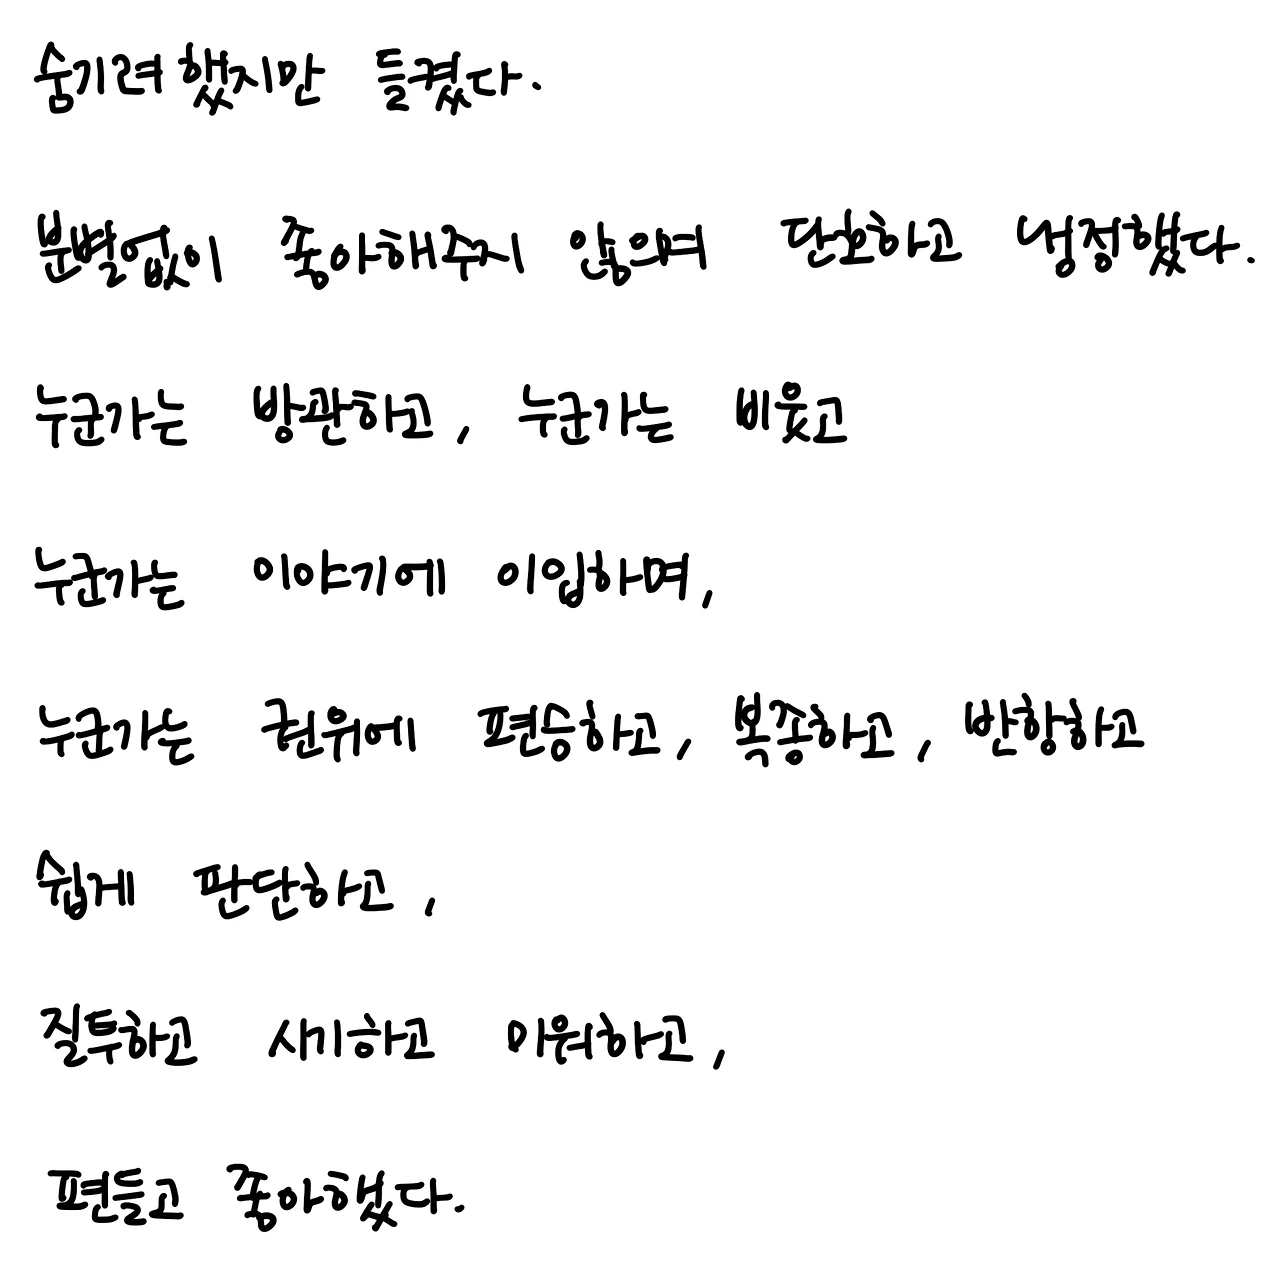 숨기려했지만 들켰다.
분별없이 좋아해주지 않으며 단호하고 냉정했다.
누군가는 방관하고, 누군가는 비웃고
누군가는 이야기에 이입하며,
누군가는 권위에 편승하고, 복종하고, 반항하고
쉽게 판단하고,
질투하고 시기하고 미워하고,
편들고 좋아했다.